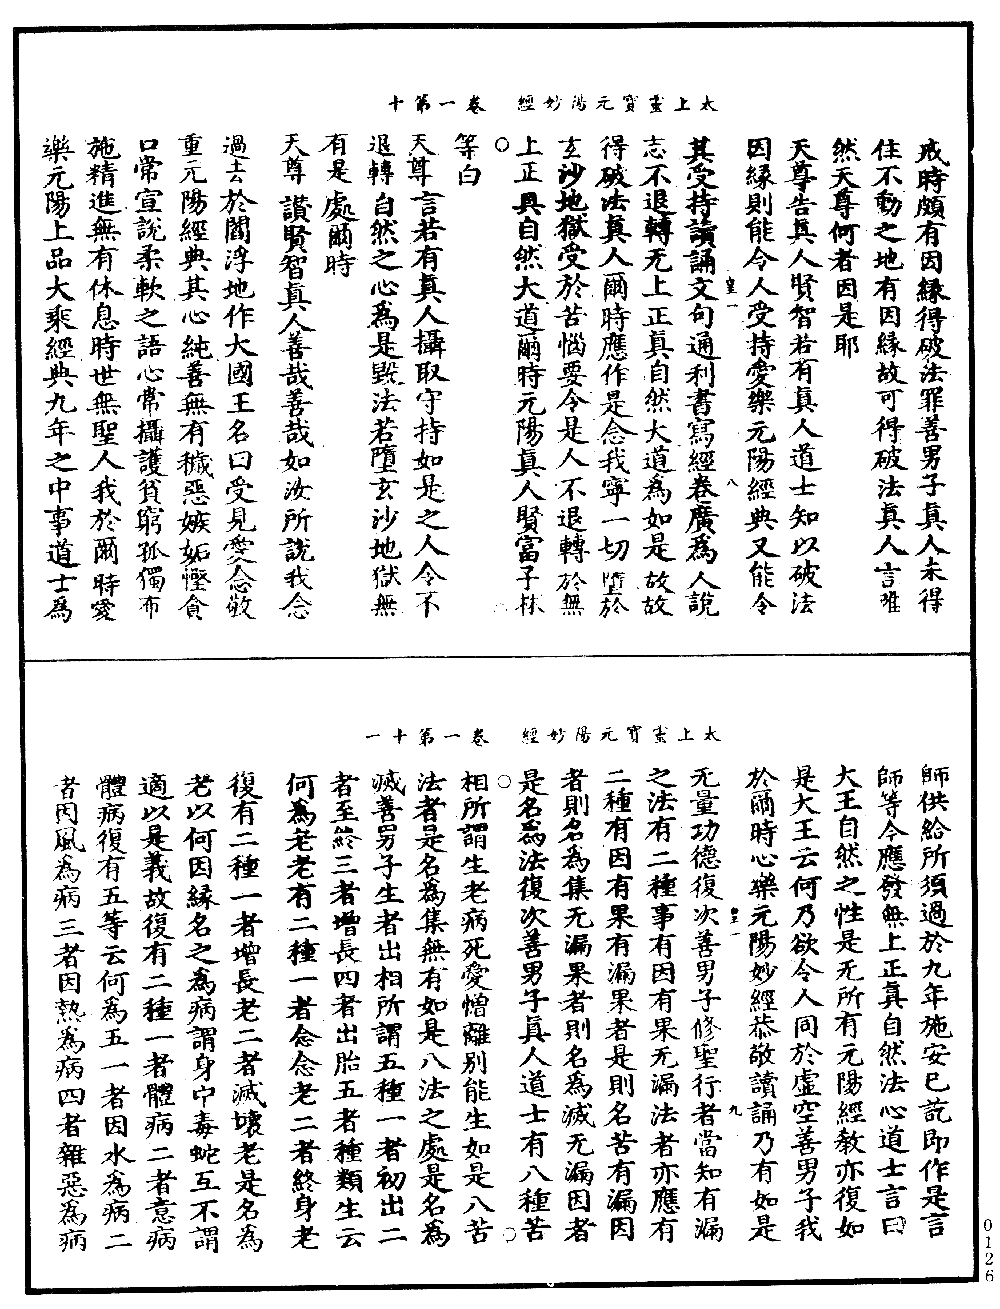 太上靈寶元陽妙經　卷一第十
戒時頗有因緣得破法罪善男子真人未得
住不動之地有因緣故可得破法真人言唯
然天尊何者因是耶
天尊告真人賢智若有真人道士知以破法
因緣則能令人受持愛樂元陽經典又能令
皇一　八
其受持讀誦文句通利書寫經卷廣為人說
志不退轉无上正真自然大道為如是故故
得破法真人爾時應作是念我寧一切墮於
玄沙地獄受於苦惱要令是人不退轉於無
上正真自然大道爾時元陽真人賢富子林
等白
天尊言若有真人攝取守持如是之人令不
退轉自然之心為是毀法若墮玄沙地獄無
有是處爾時
天尊讚賢智真人善哉善哉如汝所說我念
過去於閻浮地作大國王名曰受見愛念敬
重元陽經典其心純善無有穢惡嫉妬慳貪
口常宣說柔軟之語心常攝護貧窮孤獨布
施精進無有休息時世無聖人我於爾時愛
樂元陽上品大乘經典九年之中事道士為
太上靈寶元陽妙經　卷一第十一
師供給所須過於九年施安已訖即作是言
師等令應發無上正真自然法心道士言曰
大王自然之性是无所有元陽經教亦復如
是大王云何乃欲令人同於虛空善男子我
於爾時心樂元陽妙經恭敬讀誦乃有如是
皇一　九
无量功德復次善男子修聖行者當知有漏
之法有二種事有因有果无漏法者亦應有
二種有因有果有漏果者是則名苦有漏因
者則名為集无漏果者則名為滅无漏因者
是名為法復次善男子真人道士有八種苦
相所謂生老病死愛憎離別能生如是八苦
法者是名為集無有如是八法之處是名為
滅善男子生者出相所謂五種一者初出二
者至終三者增長四者出胎五者種類生云
何為老老有二種一者念念老二者終身老
復有二種一者增長老二者滅壞老是名為
老以何因緣名之為病謂身中毒蛇互不調
適以是義故復有二種一者體病二者意病
體病復有五等云何為五一者因水為病二
者因風為病三者因熱為病四者雜惡為病
0126